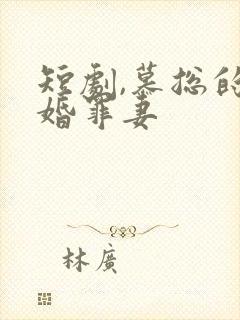 短劇,慕总的
婚罪妻
林廣